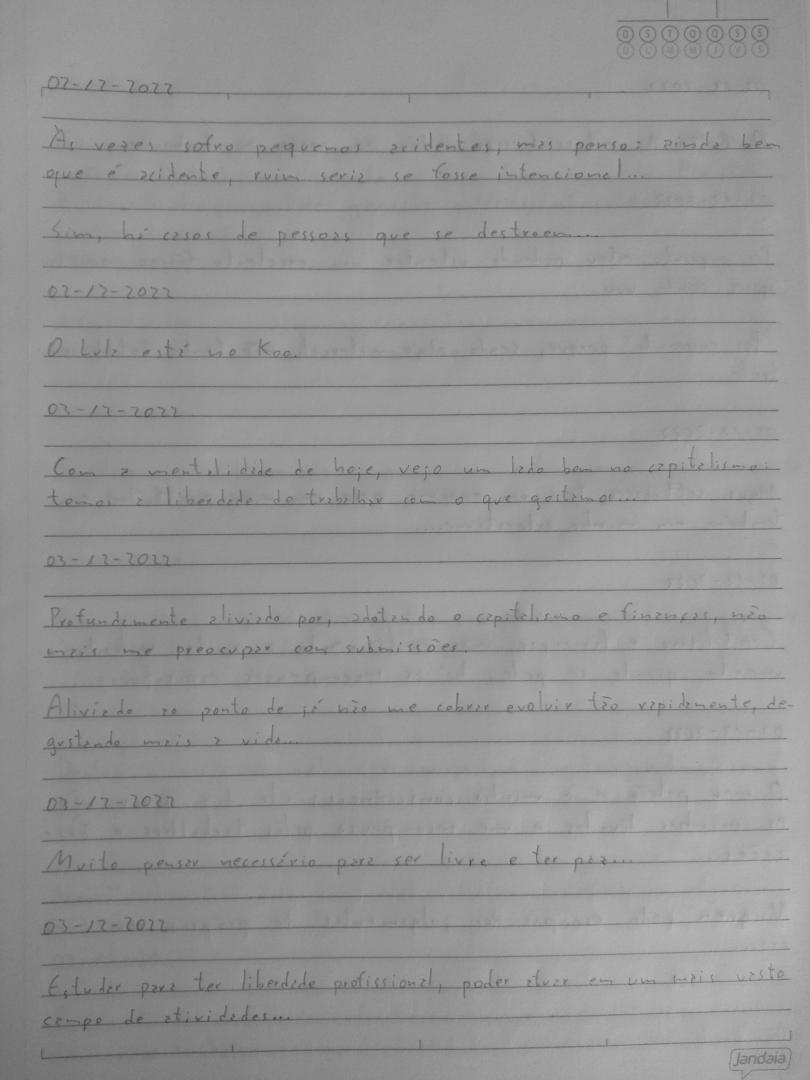 D S T Q Q S S
D L M M J V S
02-12-2022
Às vezes sofro pequenos acidentes, mas penso: ainda bem
que é acidente, ruim seria se fosse intencional...
Sim, há casos de pessoas que se destroem...
02-12-2022
O Lula está no Koo.
03-12-2022
Com a mentalidade de hoje, vejo um lado bom no capitalismo:
temos a liberdade de trabalhar com o que gostamos...
03-12-2022
Profundamente aliviado por, adotando o capitalismo e finanças, não
mais me preocupar com submissões.
Aliviado ao ponto de já não me cobrar evoluir tão rapidamente, de-
gustando mais a vida...
03-12-2022
Muito pensar necessário para ser livre e ter paz...
03-12-2022
Estudar para ter liberdade profissional, poder atuar em um mais vasto
campo de atividades...
jandaia